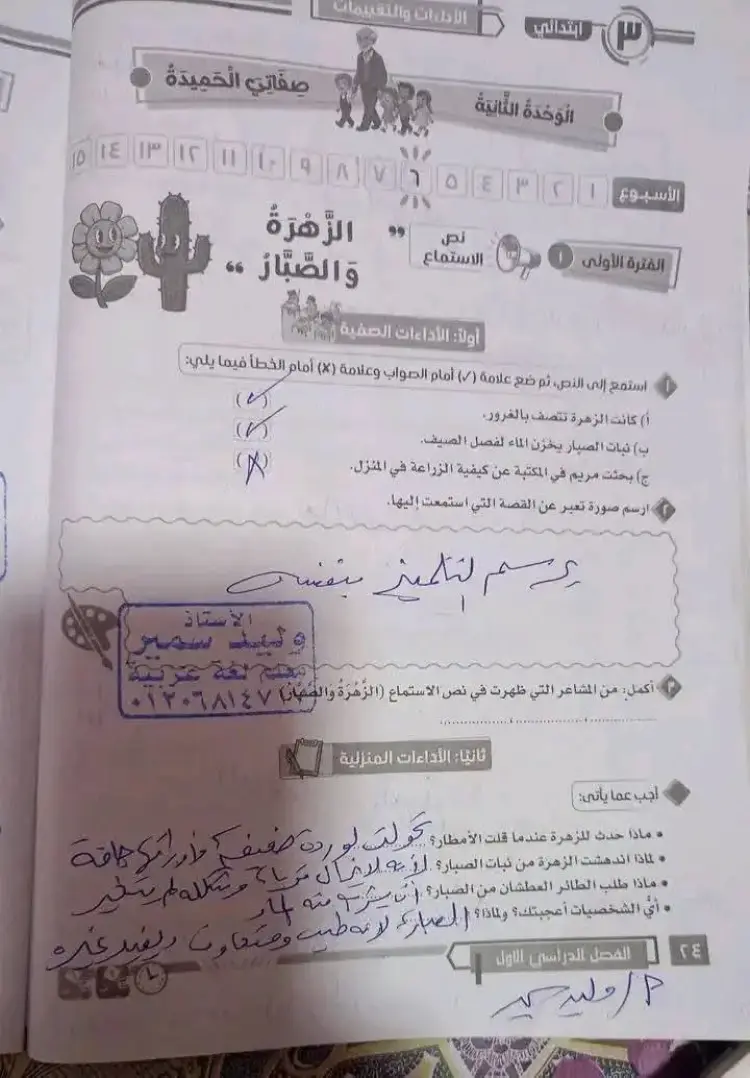 الأداءات والتقييمات
٣ ابتدائي
الْوَحْدَةُ الثَّانِيَةُ صِفَاتِيَ الْحَمِيدَةُ
الأسبوع ١ ٢ ٣ ٤ ٥ ٦ ٧ ٨ ٩ ١٠ ١١ ١٢ ١٣ ١٤ ١٥
الفترة الأولى ١ نص الاستماع " الزَّهْرَةُ وَالصَّبَّارُ "
أولًا: الأداءات الصفية
١ استمع إلى النص، ثم ضع علامة (✓) أمام الصواب وعلامة (✗) أمام الخطأ فيما يلي:
أ) كانت الزهرة تتصف بالغرور. (✓)
ب) نبات الصبار يخزن الماء لفصل الصيف. (✓)
ج) بحثت مريم في المكتبة عن كيفية الزراعة في المنزل. (✗)
٢ ارسم صورة تعبر عن القصة التي استمعت إليها.
يرسم التلميذ بنفسه
الأستاذ
وليد سمير
معلم لغة عربية
٣ أكمل: من المشاعر التي ظهرت في نص الاستماع (الزَّهْرَةُ وَالصَّبَّارُ)
ثانيًا: الأداءات المنزلية
أجب عما يأتي:
• ماذا حدث للزهرة عندما قلت الأمطار؟ تحولت لوردة ضعيفة وأوراقها جافة
• لماذا اندهشت الزهرة من نبات الصبار؟ لأنه لا يزال قويا وشكله لم يتغير
• ماذا طلب الطائر العطشان من الصبار؟ أن يشرب منه الماء
• أي الشخصيات أعجبتك؟ ولماذا؟ الصبار لأنه طيب ومتعاون ويفيد غيره
٢٤ الفصل الدراسي الأول
أ/ وليد سمير